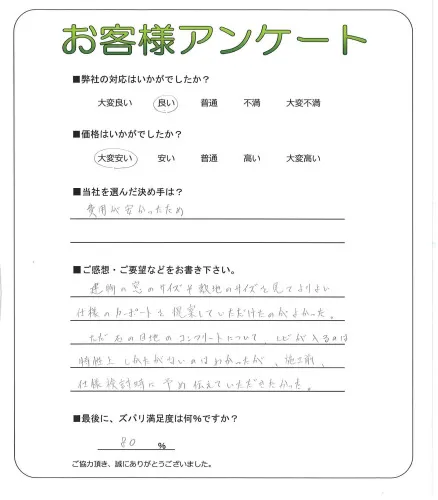 お客様アンケート
■弊社の対応はいかがでしたか？
大変良い 良い 普通 不満 大変不満
■価格はいかがでしたか？
大変安い 安い 普通 高い 大変高い
■当社を選んだ決め手は？
費用が安かったため
■ご感想・ご要望などをお書き下さい。
建物の窓のサイズや敷地のサイズを見てよりよい
仕様のカーポートを提案していただけたのがよかった。
ただ の目地のコンクリートについて、ヒビが入るのは
特性上しかたがないのはわかったが、施工前、
仕様検討時に予め伝えていただきたかった。
■最後に、ズバリ満足度は何%ですか？
80 %
ご協力頂き、誠にありがとうございました。